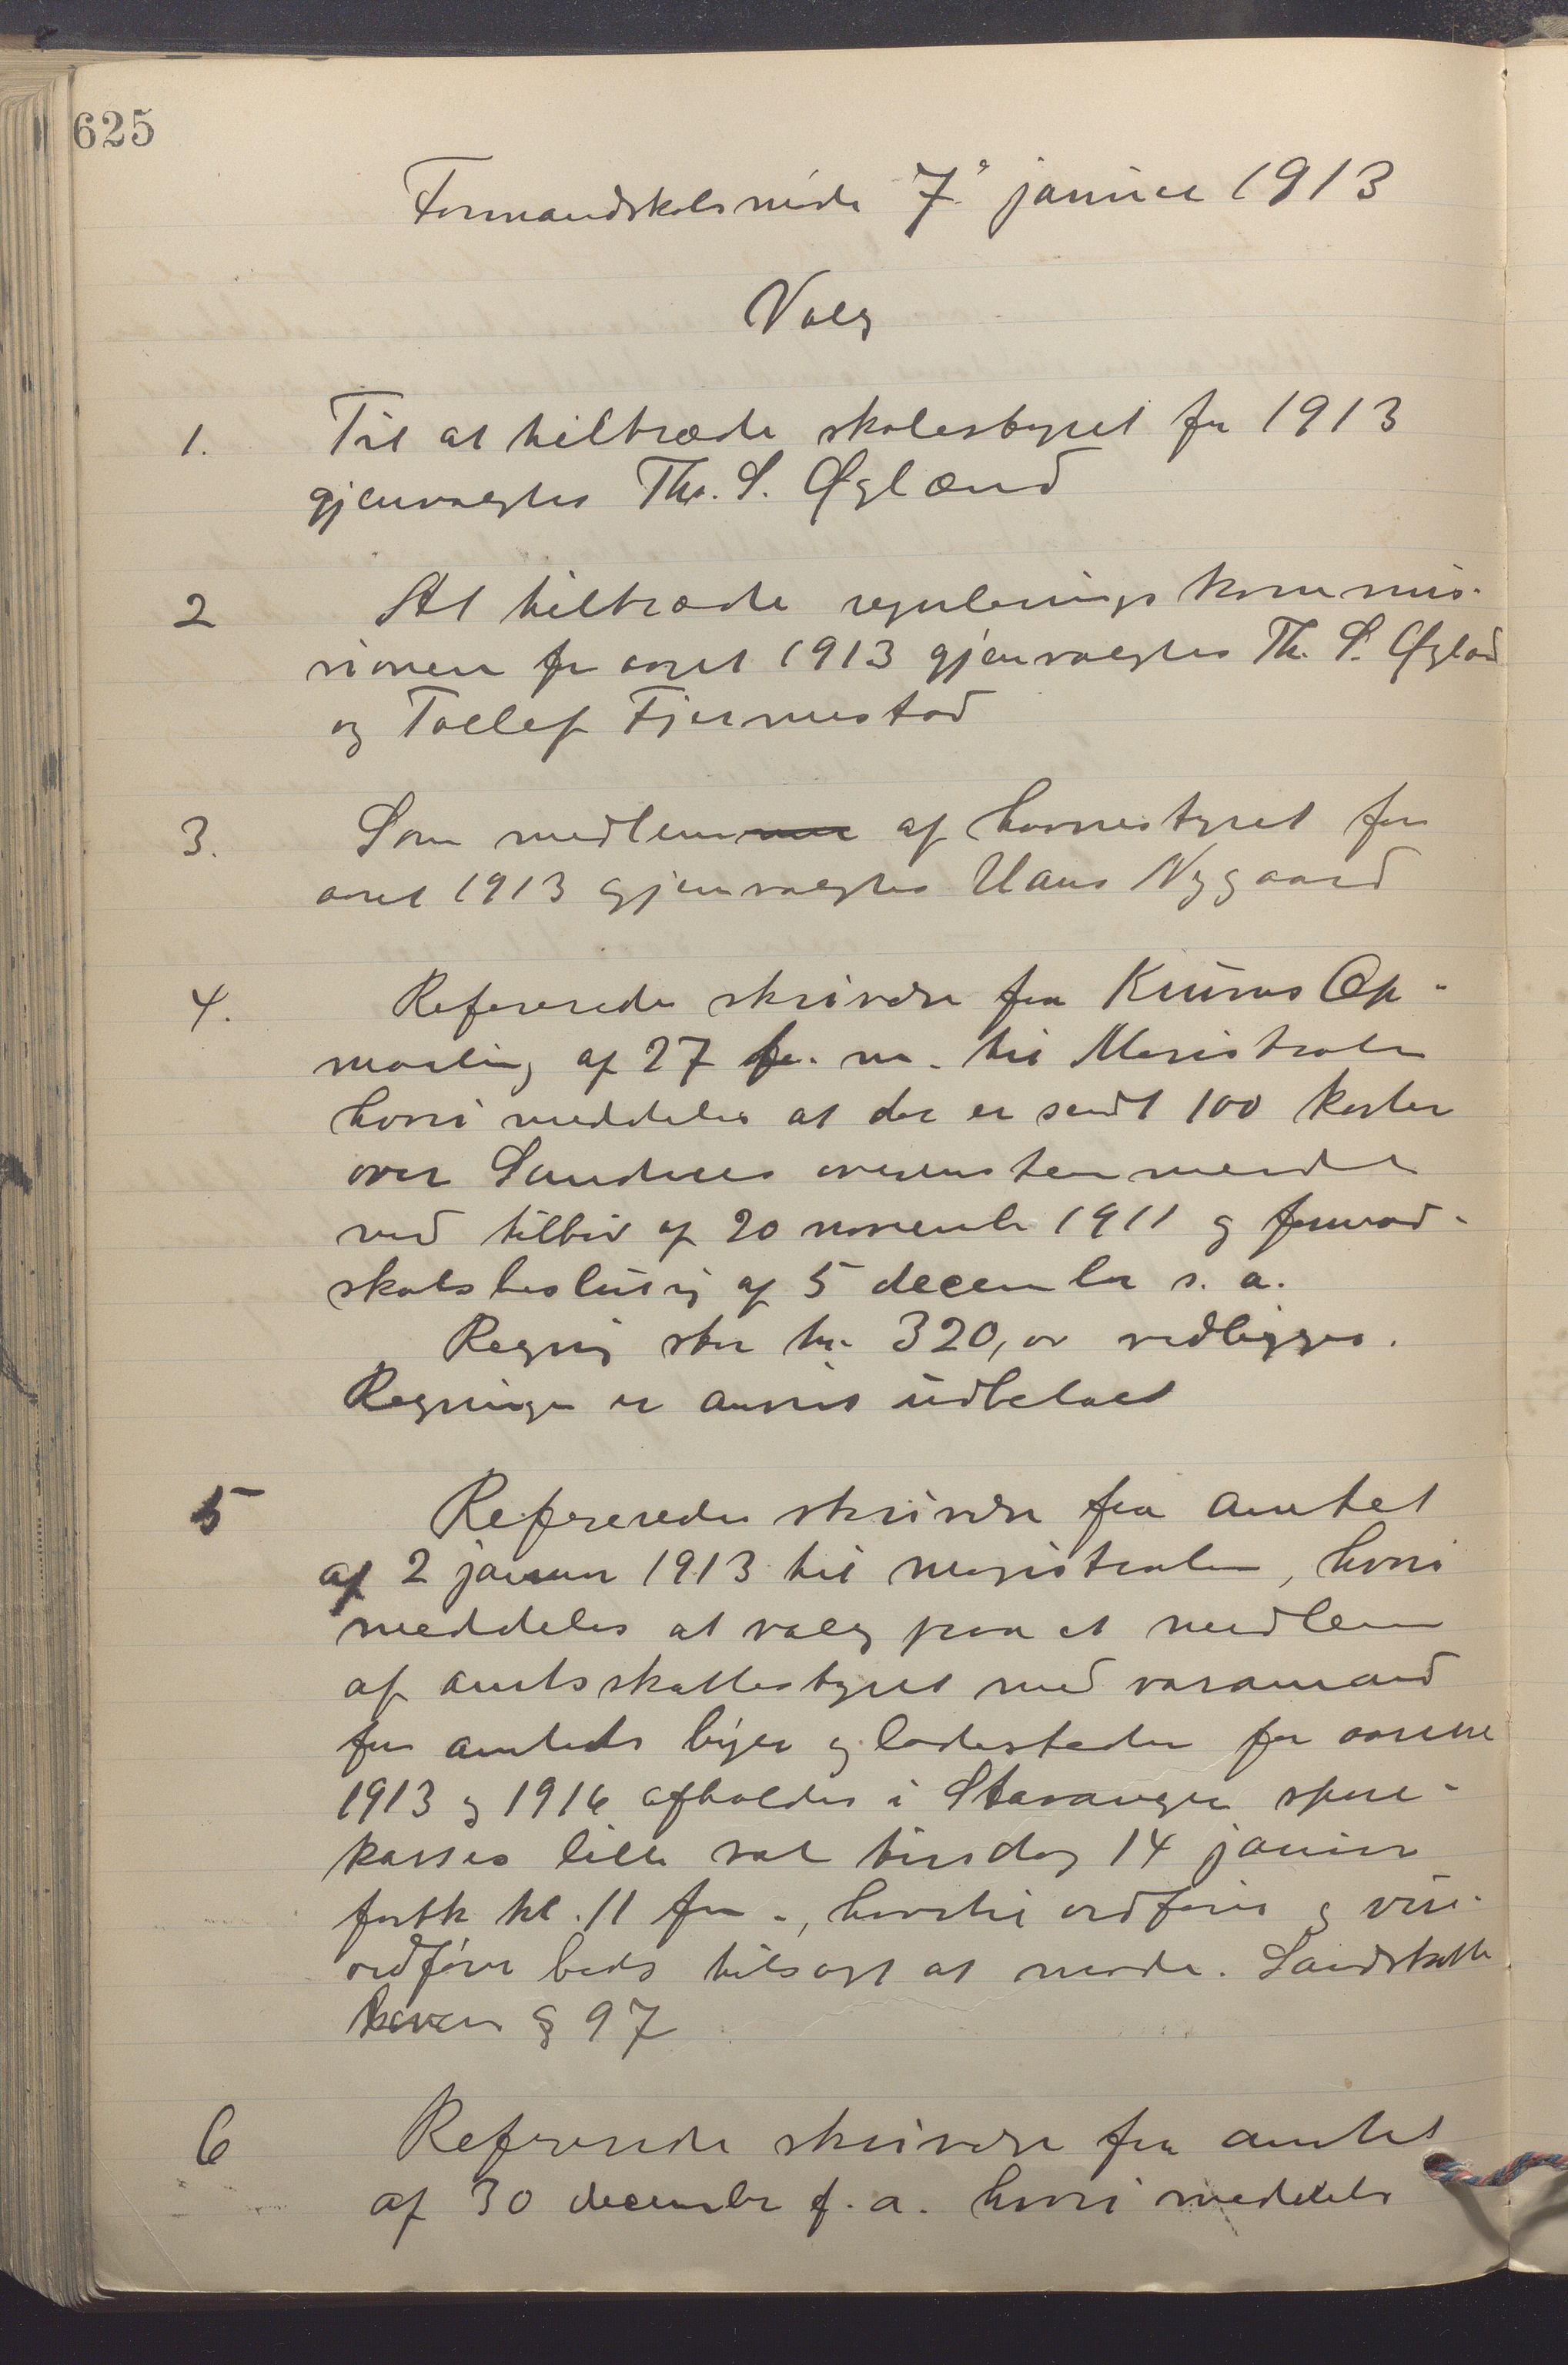 625
Formandskabsmøde 7' januar 1913
Valg
1. Til at tiltræde skolestyret for 1913
gjenvalgtes Th. S. Øglænd
2 At tiltræde regulerings kommis-
sionen for aaret 1913 gjenvalgtes Th. S. Øglænd
og Tollef Fjermestad
3. Som medlemmer af havnestyret for
aaret 1913 gjenvalgtes Hans Nygaard
4. Refereredes skrivelse fra Op-
maaling af 27 f. m. til Magistraten
hvori meddeles at der er sendt 100 karter
over Sandnes overensstemmende
med tilbud af 20 november 1911 og formand-
skabsbeslutning af 5 december s. a.
Regning stor kr. 320,00 vedlægges.
Regningen er anvist udbetalt
5 Refereredes skrivelse fra amtet
af 2 januar 1913 til magistraten, hvori
meddeles at valg paa et medlem
af amtsskattestyret med varamand
for amtets byer og ladesteder for aarene
1913 og 1916 afholdes i Stavanger spare-
kasses lille sal tirsdag 14 januar
førstk kl. 11 fm., hvortil ordfører og vise-
ordfører bedes tilsagt at møde. Landsskatte
loven § 97
6 Refereredes skrivelse fra amtet
af 30 december f. a. hvori meddeles